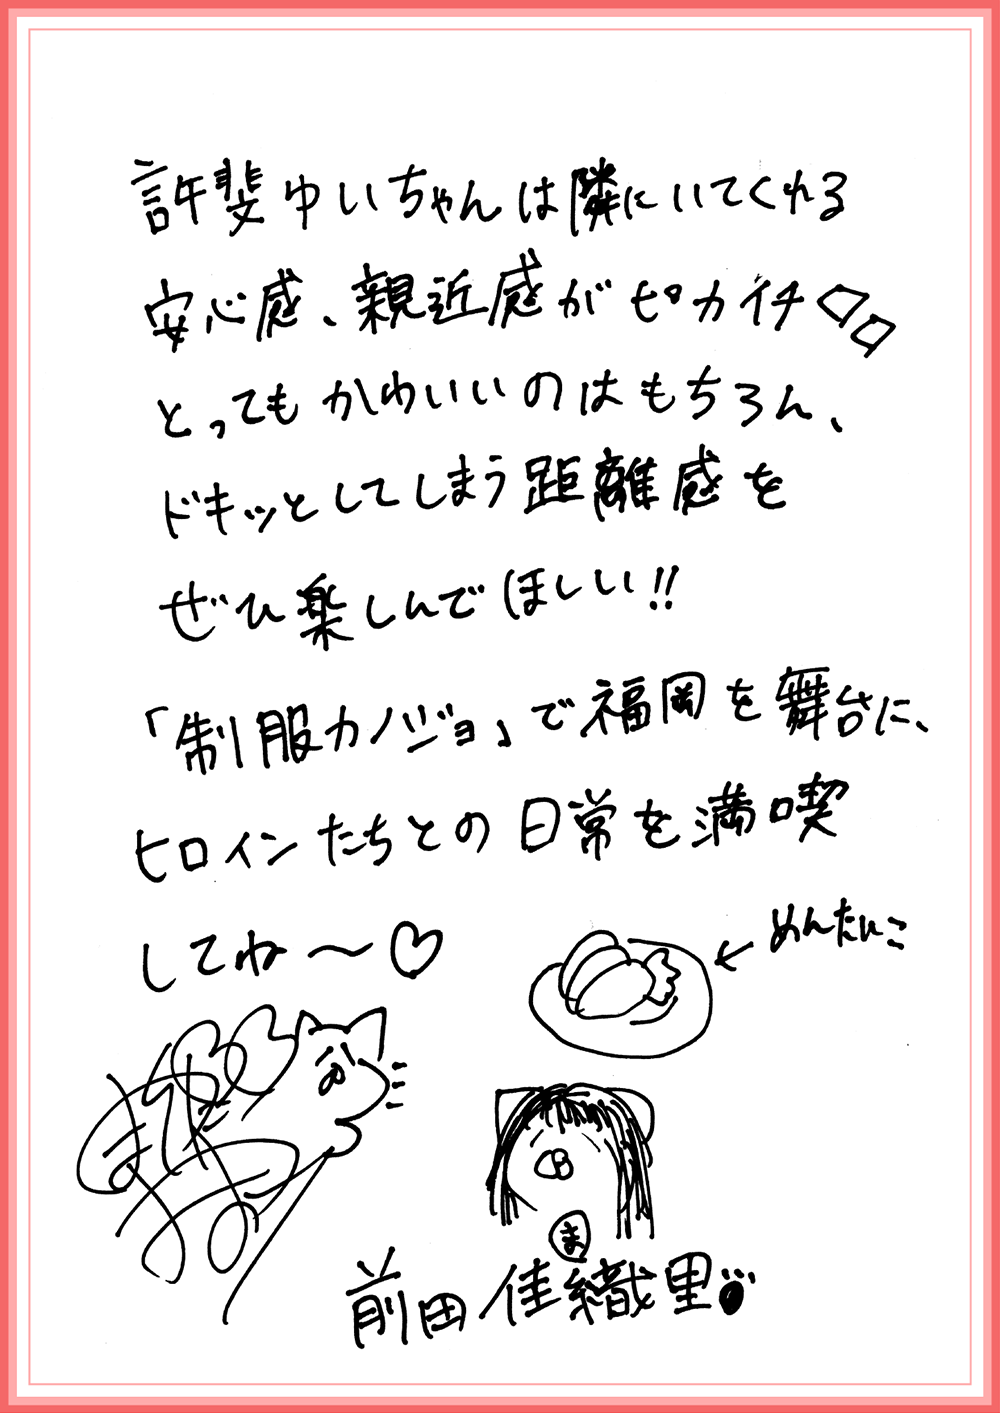 許斐ゆいちゃんは隣にいてくれる
安心感、親近感がピカイチ
とってもかわいいのはもちろん、
ドキッとしてしまう距離感を
ぜひ楽しんでほしい!!
「制服カノジョ」で福岡を舞台に、
ヒロインたちとの日常を満喫
してね〜♡
←めんたいこ
ま
前田佳織里